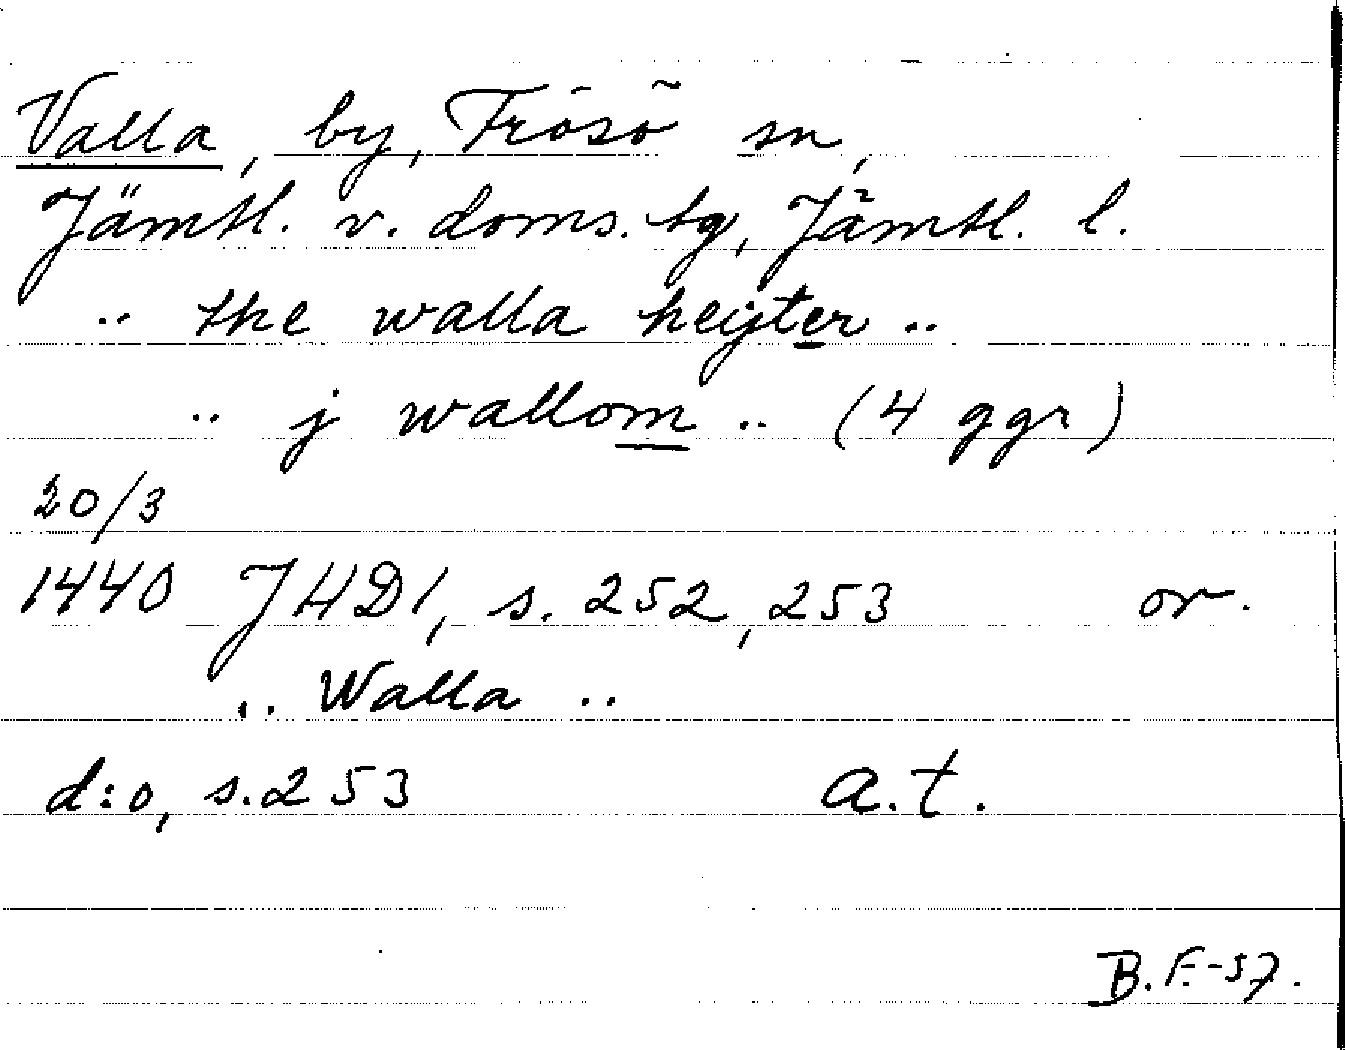 Valla, by, Frösö sn,
Jämtl. v. doms. tg, Jämtl. l.
.. the walla heyter ..
.. j wallom .. (4 ggr)
20/3
1440 JHD1, s. 252, 253 or.
.. Walla ..
d:o, s. 253 a.t.
B.F.-57.